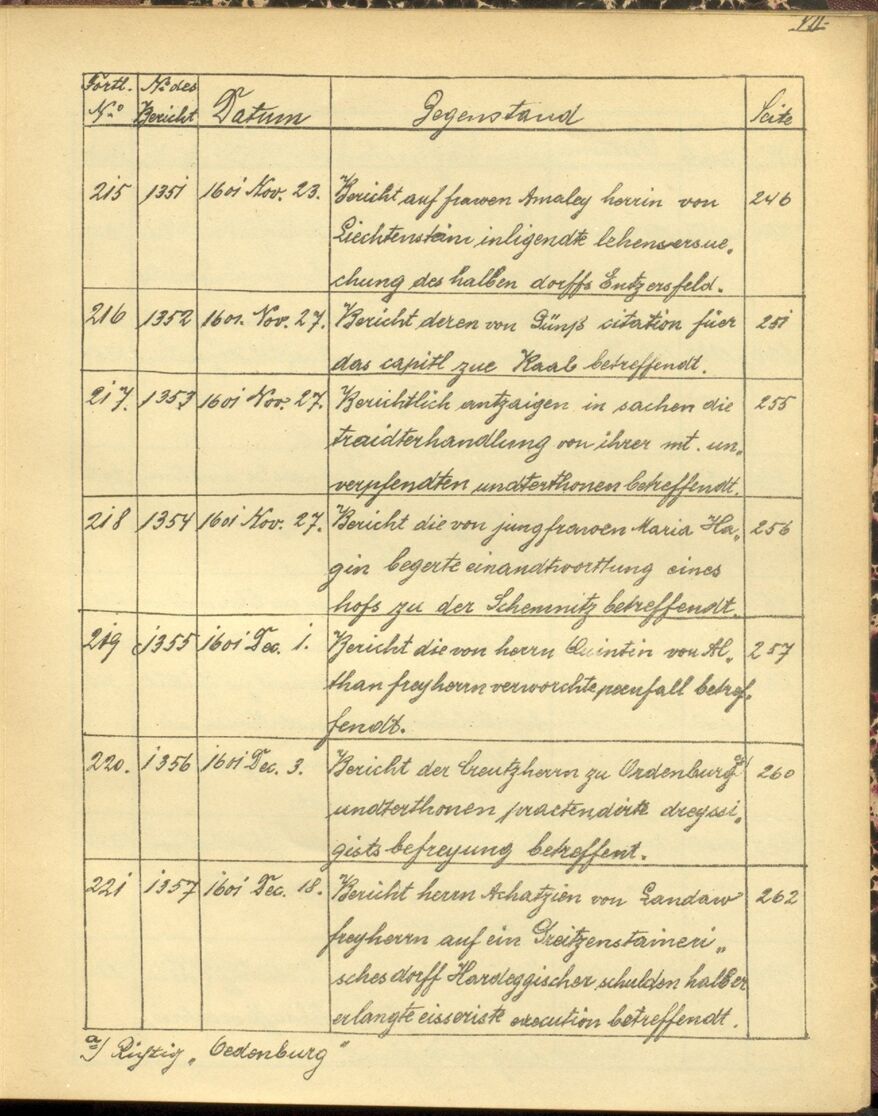 VII.
Fortl. N.º | Nº des Bericht | Datum | Gegenstand | Seite
215 | 1351 | 1601 Nov. 23. | Bericht auf frawen Amaley herrin von | 246
Liechtenstein inligendte lehensersue„
chung des halben dorffs Entzersfeld.
216 | 1352 | 1601. Nov. 27. | Bericht deren von Günß citation füer | 251
das capitl zue Raab betreffendt.
217. | 1353 | 1601 Nov. 27. | Berichtlich antzaigen in sachen die | 255
traidterhandlung von ihrer mt. un„
verpfendten undterthonen betreffendt.
218 | 1354 | 1601 Nov. 27. | Bericht die von jungfrawen Maria Ha„ | 256
gin begerte einandtworttung eines
hofs zu der Schemnitz betreffendt.
219 | 1355 | 1601 Dec. 1. | Bericht die von herrn Quintin von Al„ | 257
than freyherrn verworchte peenfall betref„
fendt.
220. | 1356 | 1601 Dec. 3. | Bericht der Creutzherrn zu Ordenburg a) | 260
undterthonen praetendirte dreyssi„
gists befreyung betreffent.
221 | 1357 | 1601 Dec. 18. | Bericht herrn Achatzien von Landaw | 262
freyherrn auf ein Greitzenstaineri„
sches dorff Hardeggischer schulden halber
erlangte eisseriste execution betreffendt.
a) Richtig „Oedenburg"